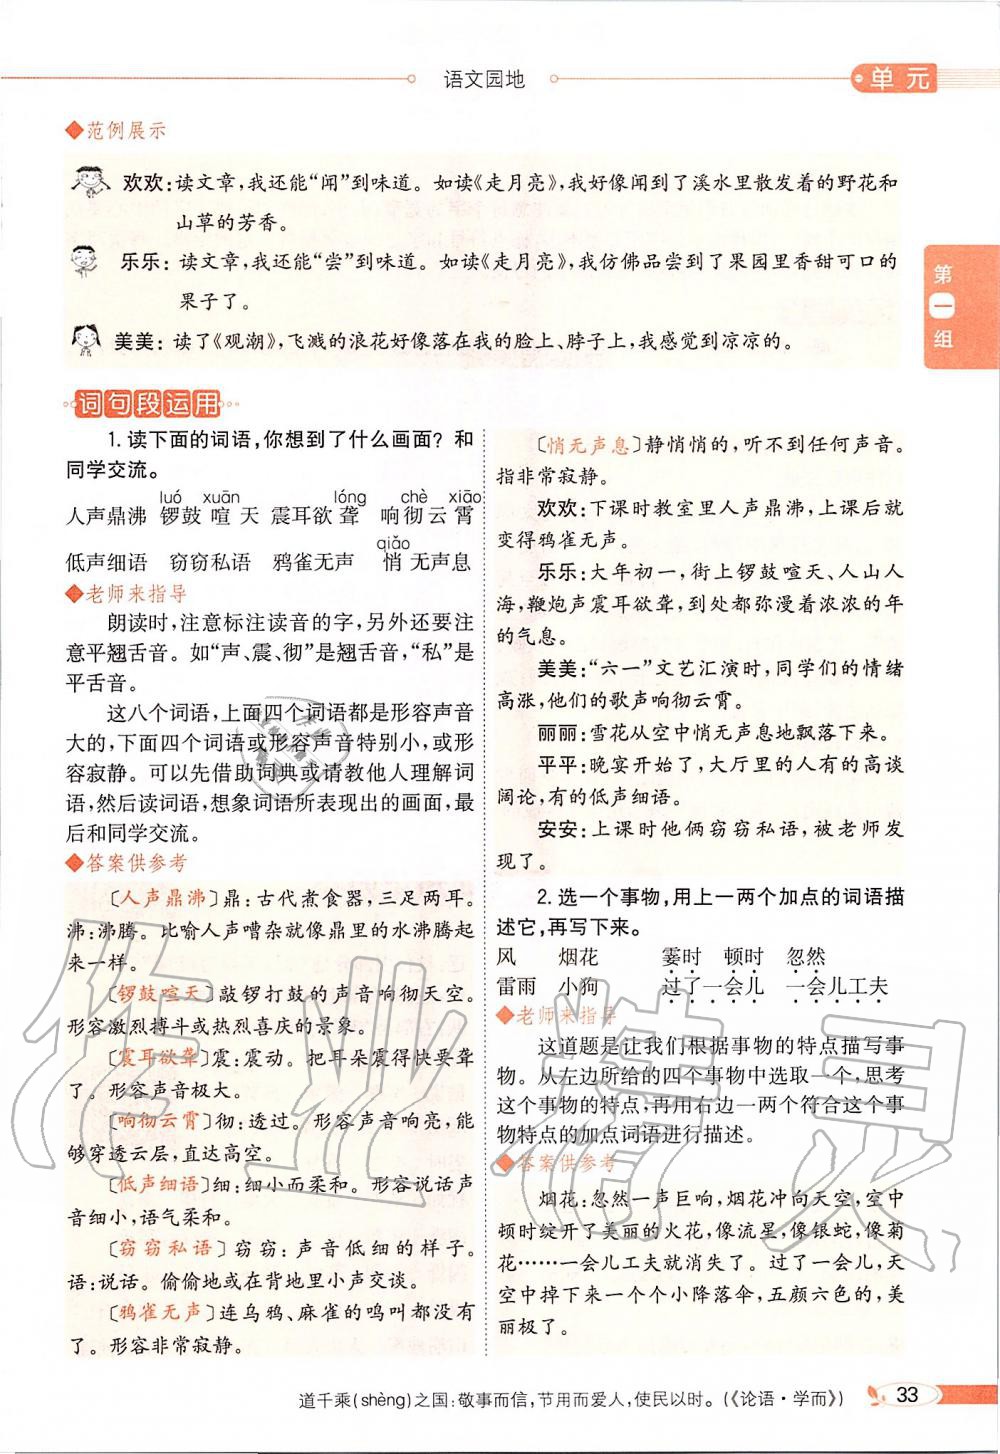 语文园地
单元
◆范例展示
欢欢:读文章,我还能“闻”到味道。如读《走月亮》,我好像闻到了溪水里散发着的野花和
山草的芳香。
乐乐:读文章,我还能“尝”到味道。如读《走月亮》,我仿佛品尝到了果园里香甜可口的
果子了。
美美:读了《观潮》,飞溅的浪花好像落在我的脸上、脖子上,我感觉到凉凉的。
第
一
组
词句段运用
1. 读下面的词语,你想到了什么画面?和
同学交流。
luó xuān lóng chè xiāo
人声鼎沸 锣鼓喧天 震耳欲聋 响彻云霄
qiǎo
低声细语 窃窃私语 鸦雀无声 悄无声息
◆老师来指导
朗读时,注意标注读音的字,另外还要注
意平翘舌音。如“声、震、彻”是翘舌音,“私”是
平舌音。
这八个词语,上面四个词语都是形容声音
大的,下面四个词语或形容声音特别小,或形
容寂静。可以先借助词典或请教他人理解词
语,然后读词语,想象词语所表现出的画面,最
后和同学交流。
◆答案供参考
〔人声鼎沸〕鼎:古代煮食器,三足两耳。
沸:沸腾。比喻人声嘈杂就像鼎里的水沸腾起
来一样。
〔锣鼓喧天〕敲锣打鼓的声音响彻天空。
形容激烈搏斗或热烈喜庆的景象。
〔震耳欲聋〕震:震动。把耳朵震得快要聋
了。形容声音极大。
〔响彻云霄〕彻:透过。形容声音响亮,能
够穿透云层,直达高空。
〔低声细语〕细:细小而柔和。形容说话声
音细小,语气柔和。
〔窃窃私语〕窃窃:声音低细的样子。
语:说话。偷偷地或在背地里小声交谈。
〔鸦雀无声〕连乌鸦、麻雀的鸣叫都没有
了。形容非常寂静。
〔悄无声息〕静悄悄的,听不到任何声音。
指非常寂静。
欢欢:下课时教室里人声鼎沸,上课后就
变得鸦雀无声。
乐乐:大年初一,街上锣鼓喧天、人山人
海,鞭炮声震耳欲聋,到处都弥漫着浓浓的年
的气息。
美美:“六一”文艺汇演时,同学们的情绪
高涨,他们的歌声响彻云霄。
丽丽:雪花从空中悄无声息地飘落下来。
平平:晚宴开始了,大厅里的人有的高谈
阔论,有的低声细语。
安安:上课时他俩窃窃私语,被老师发
现了。
2. 选一个事物,用上一两个加点的词语描
述它,再写下来。
风 烟花 霎时 顿时 忽然
雷雨 小狗 过了一会儿 一会儿工夫
◆老师来指导
这道题是让我们根据事物的特点描写事
物。从左边所给的四个事物中选取一个,思考
这个事物的特点,再用右边一两个符合这个事
物特点的加点词语进行描述。
◆答案供参考
烟花:忽然一声巨响,烟花冲向天空,空中
顿时绽开了美丽的火花,像流星,像银蛇,像菊
花……一会儿工夫就消失了。过了一会儿,天
空中掉下来一个个小降落伞,五颜六色的,美
丽极了。
道千乘(shèng)之国:敬事而信,节用而爱人,使民以时。(《论语·学而》)
33
作业精灵